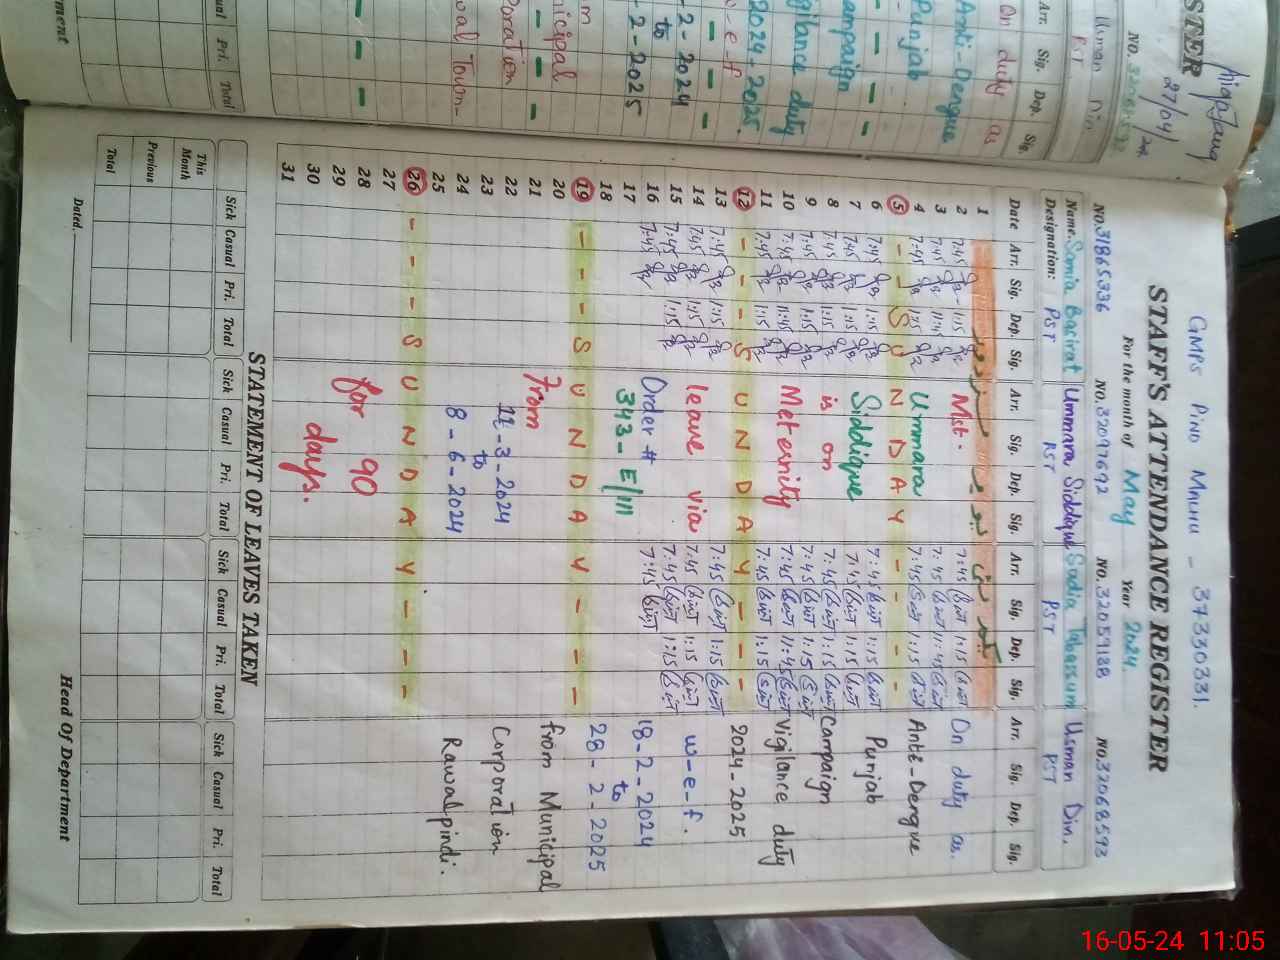 GMPS Pind Malhu - 37330331.
STAFF'S ATTENDANCE REGISTER
For the month of May Year 2024
NO.31865336 NO.32097692 NO.32059188 NO.32068593
Name: Samia Basirat Ummara Siddique Sadia Tabassum Usman Din.
Designation: PST PST PST PST
Date Arr. Sig. Dep. Sig. Arr. Sig. Dep. Sig. Arr. Sig. Dep. Sig. Arr. Sig. Dep. Sig.
1
2 7:45 1:15 Mst. 7:45 1:15 On duty as.
3 7:45 11:45 7:45 11:45
4 7:45 1:15 Ummara 7:45 1:15 Ante-Dengue
5 - - S U N D A Y - - -
6 7:45 1:15 7:45 1:15 Punjab
7 7:45 1:15 Siddique 7:45 1:15
8 7:45 1:15 is on 7:45 1:15 Campaign
9 7:45 1:15 7:45 1:15
10 7:45 11:45 Meternity 7:45 11:45 Vigilance duty
11 7:45 1:15 7:45 1:15
12 - - - S U N D A Y - - - 2024-2025
13 7:45 1:15 7:45 1:15
14 7:45 1:15 leave via 7:45 1:15 w-e-f.
15 7:45 1:15 7:45 1:15
16 7:45 Order # 7:45 18-2-2024
17 343-E/111 to
18 28-2-2025
19 - - - S U N D A Y - - -
20 from Municipal
21 From
22 11-3-2024 Corporation
23 to
24 8-6-2024 Rawalpindi.
25
26 - - - S U N D A Y - - -
27
28 for 90
29
30 days.
31
STATEMENT OF LEAVES TAKEN
Sick Casual Pri. Total Sick Casual Pri. Total Sick Casual Pri. Total Sick Casual Pri. Total
This Month
Previous
Total
Dated. Head Of Department
STER
27/04/
NO.
Usman Din
PST
Arr. Sig. Dep. Sig.
On duty as
Anti-Dengue
Punjab
ampaign
gilance duty
2024-2025.
w-e-f
-2-2024
to
-2-2025
m
icipal
poration
wal Town-
Pri. Total
rtment
16-05-24 11:05